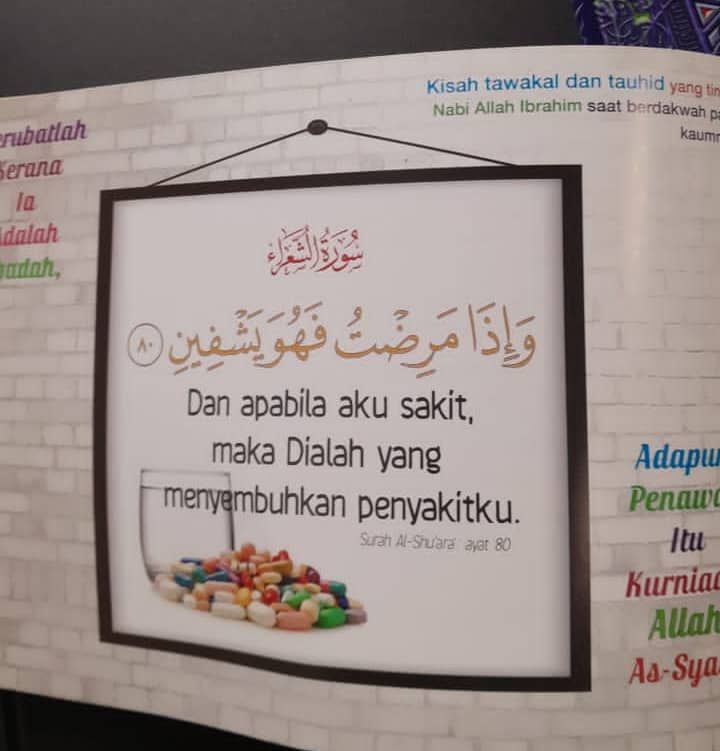 Kisah tawakal dan tauhid yang
Nabi Allah Ibrahim saat berdakwah
Kerana
Ia
Adalah
سُورَةُ الشُّعَرَاء
وَإِذَا مَرِضْتُ فَهُوَ يَشْفِينِ ٨٠
Dan apabila aku sakit,
maka Dialah yang
menyembuhkan penyakitku.
Surah Al-Shu'ara' ayat 80
Itu
Allah